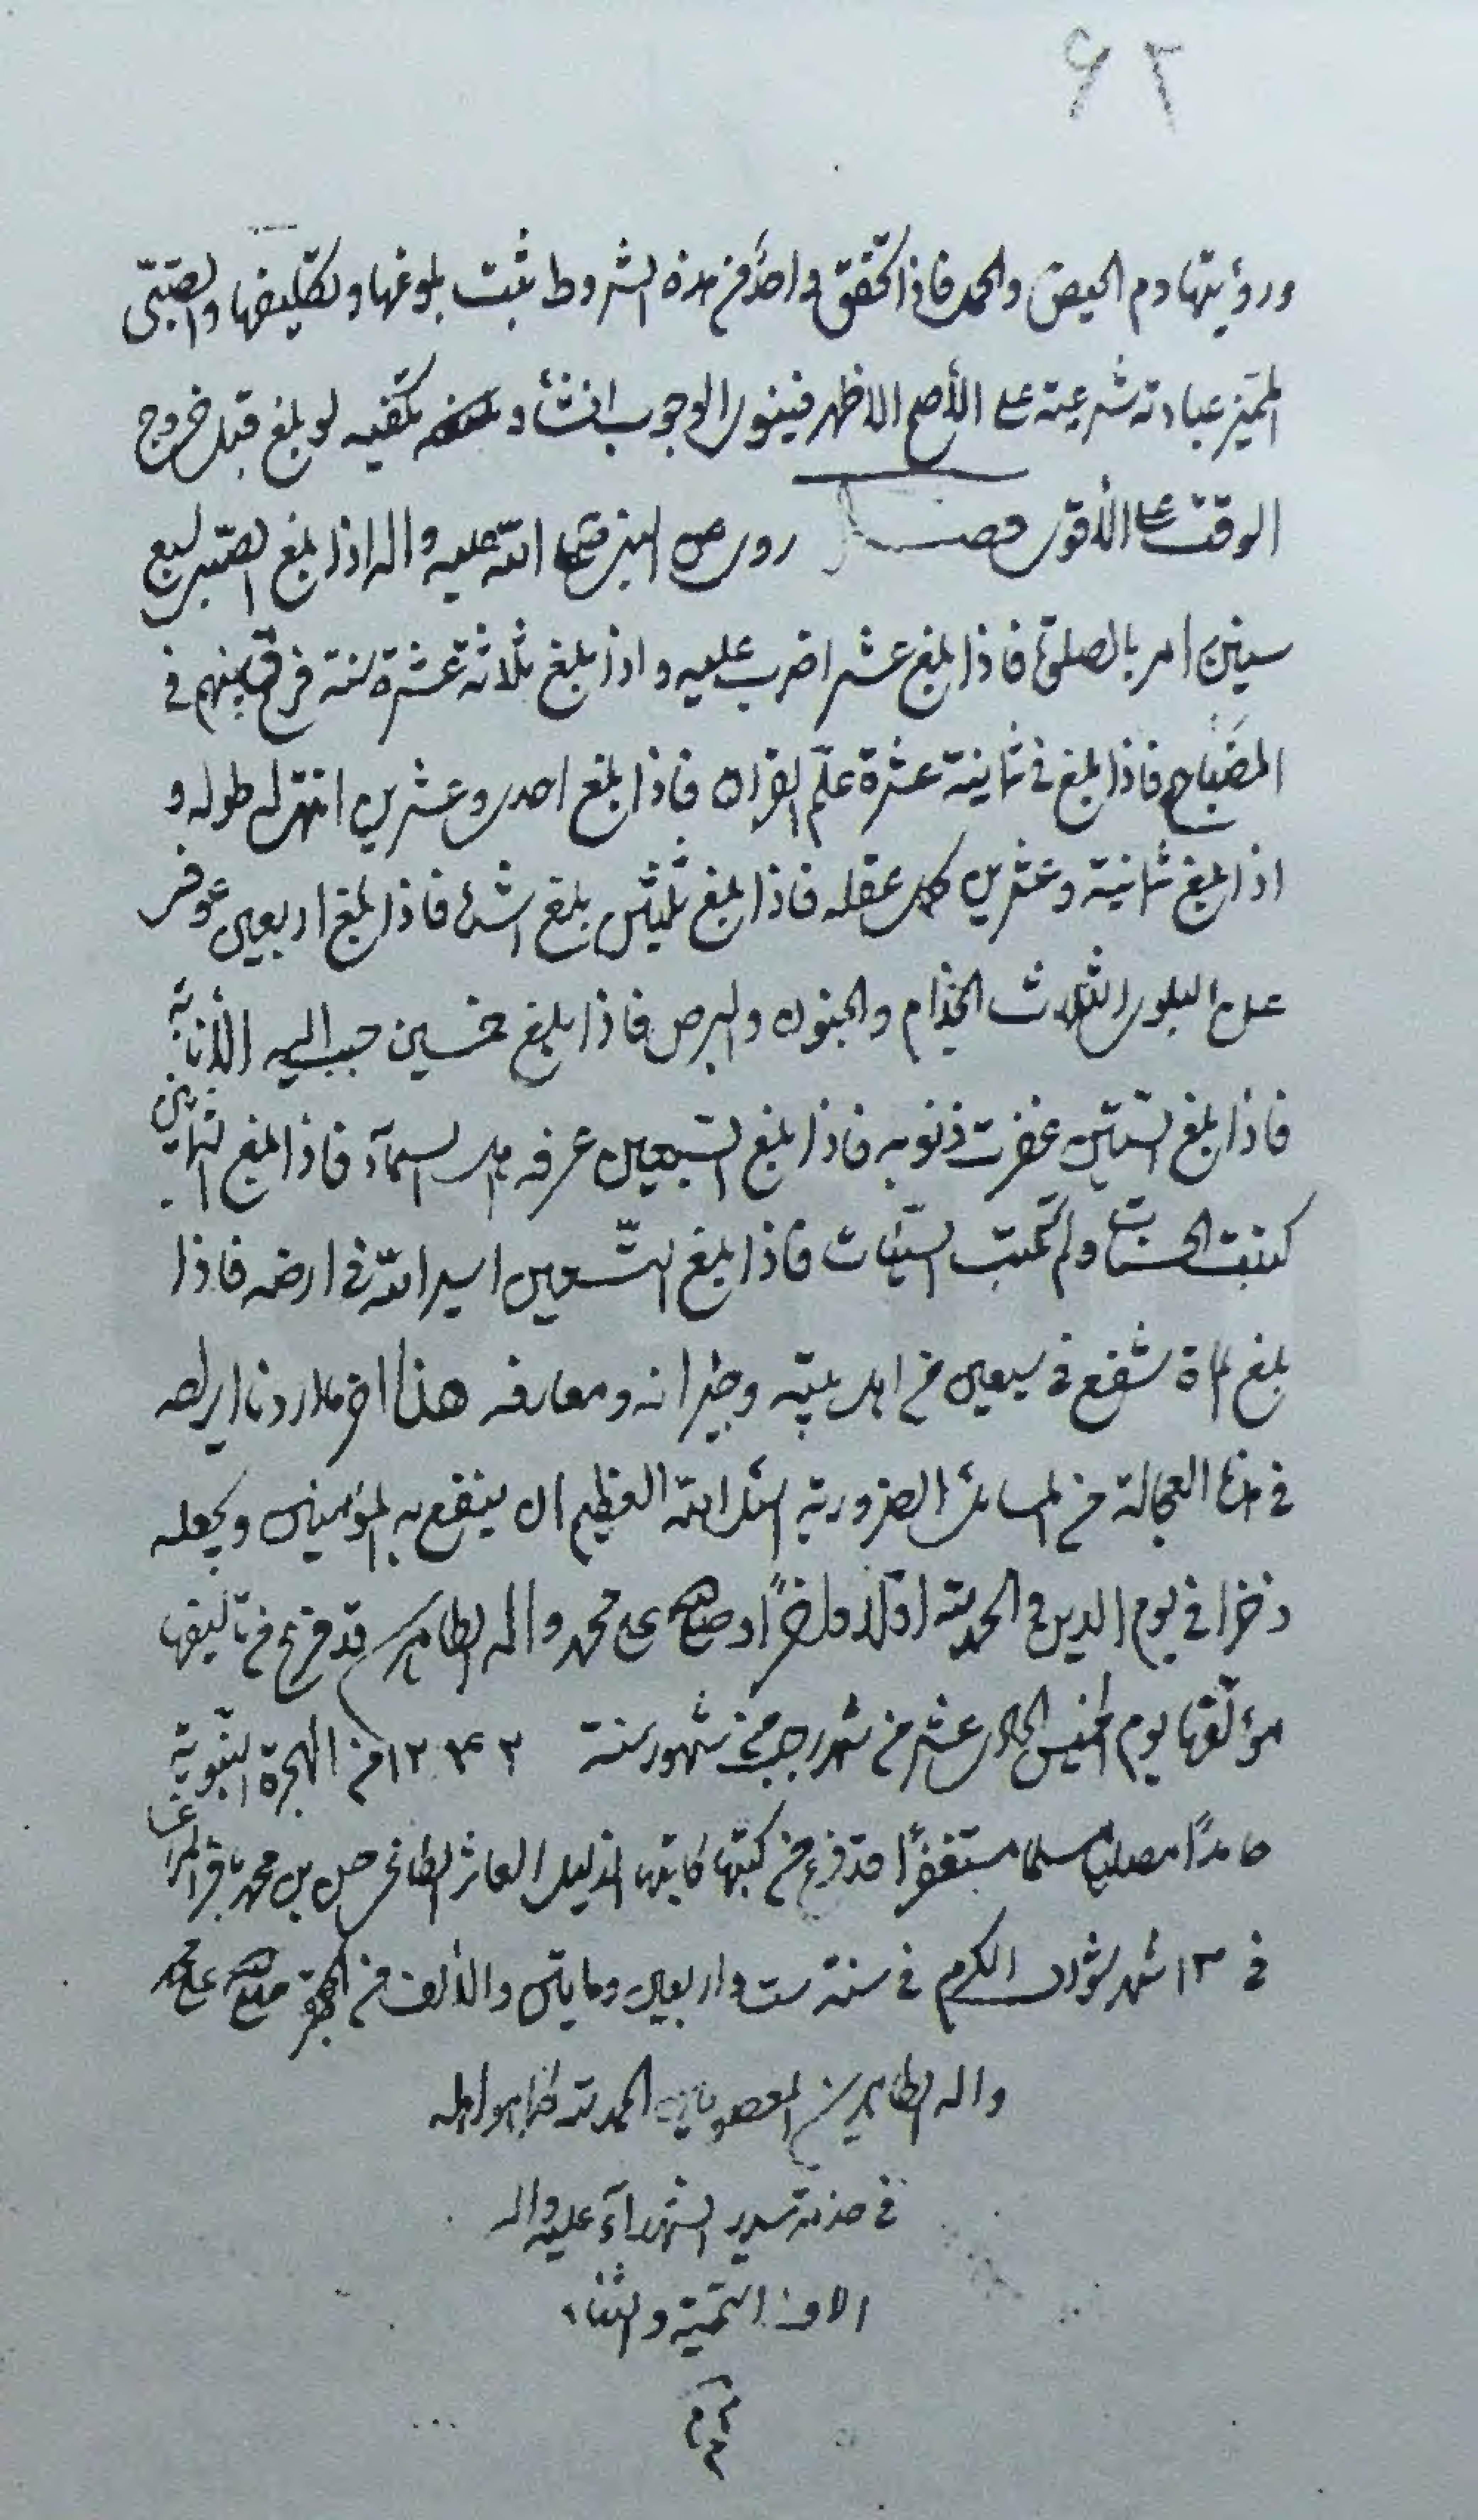 ۶۲
ورؤيتها دم الحيض والحمل فاذا تحقق واحد من هذه الشروط ثبت بلوغها وتكليفها والصبى
المميز عبادته شرعية على الأصح الاظهر فينوى الوجوب انشاء و تكفيه لو بلغ قبل خروج
الوقت على الأقوى فصل روى عن النبى صلى الله عليه واله اذا بلغ الصبى سبع
سنين امر بالصلوة فاذا بلغ عشرا ضرب عليه واذا بلغ ثلاثة عشرة سنة فرق بينهم فى
المضباجع فاذا بلغ فى ثمانية عشرة علم القران فاذا بلغ احدى وعشرين انتهى له طوله و
اذا بلغ ثمانية وعشرين كمل عقله فاذا بلغ ثلثين بلغ اشده فاذا بلغ اربعين عوفى
عن البلوى الثلاث الجذام والجنون والبرص فاذا بلغ خمسين حبب اليه الأنابة
فاذا بلغ الستين غفرت ذنوبه فاذا بلغ السبعين عرفه اهل السماء فاذا بلغ الثمانين
كتبت الحسنات ولم تكتب السيئات فاذا بلغ التسعين اسير الله فى ارضه فاذا
بلغ المأة شفع فى سبعين من اهل بيته وجيرانه ومعارفه هذا اخر ما اردنا ايراده
فى هذه العجالة من المسائل الضرورية اسئل الله العظيم ان ينفع به المؤمنين ويجعله
ذخرا فى يوم الدين والحمد لله اولا واخرا وصلى الله على محمد واله الطاهرين قد فرغ من تاليفها
مؤلفها يوم الخميس الحادى عشر من شهر رجب من شهور سنة ۱۲۴۲ من الهجرة النبوية
حامدًا مصليا مسلما مستغفرًا قد فرغ من كتبها كاتبها الذليل العاثر بن محمد باقر
فى ۱۳ شهر شوال المكرم فى سنة ست واربعين ومايتين والألف من الهجرة صلى الله على محمد
واله الطاهرين المعصومين الحمد لله كما هو اهله
فى خدمة سيد الشهدآء عليه واله
الاف التحية والثناء